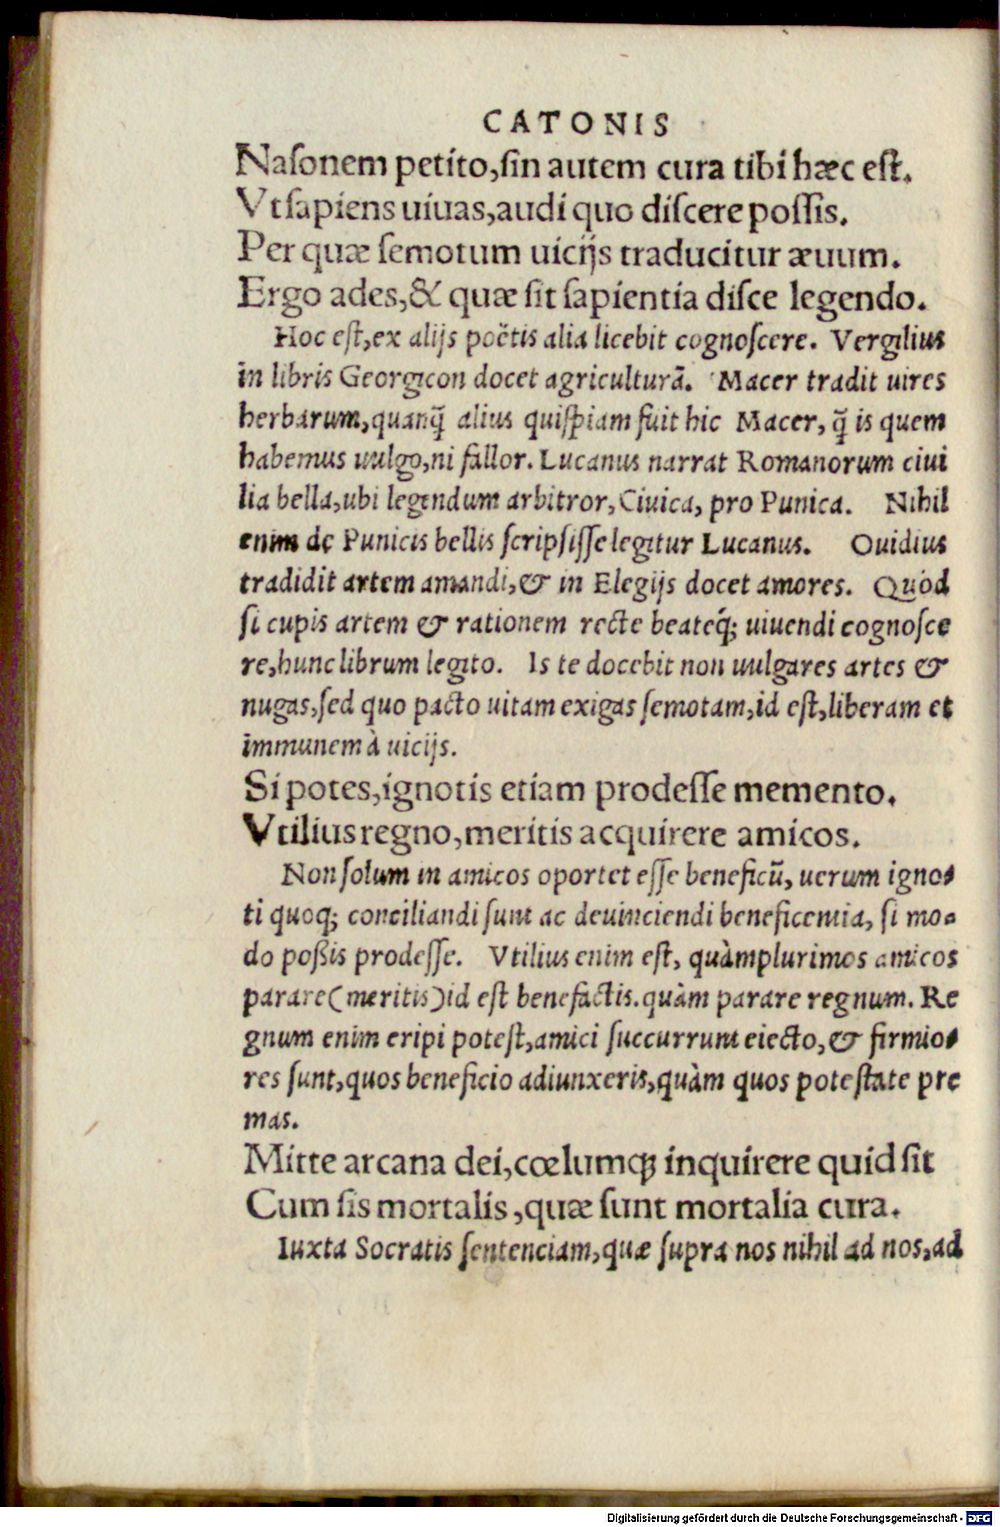 CATONIS
Naſonem petito,ſin autem cura tibi hæc eſt.
Vt ſapiens uiuas,audi quo diſcere poſſis.
Per quæ ſemotum uicijs traducitur æuum.
Ergo ades,& quæ ſit ſapientia diſce legendo.
Hoc eſt,ex alijs poëtis alia licebit cognoſcere. Vergilius
in libris Georgicon docet agriculturã. Macer tradit uires
herbarum,quanq̃ alius quiſpiam fuit hic Macer, q̃ is quem
habemus uulgo,ni fallor. Lucanus narrat Romanorum ciui
lia bella,ubi legendum arbitror, Ciuica, pro Punica. Nihil
enim de Punicis bellis ſcripſiſſe legitur Lucanus. Ouidius
tradidit artem amandi,& in Elegijs docet amores. Quòd
ſi cupis artem & rationem recte beateq́; uiuendi cognoſce
re,hunc librum legito. Is te docebit non uulgares artes &
nugas,ſed quo pacto uitam exigas ſemotam,id eſt,liberam et
immunem à uicijs.
Si potes,ignotis etiam prodeſſe memento.
Vtilius regno,meritis acquirere amicos.
Non ſolum in amicos oportet eſſe beneficũ, uerum igno-
ti quoq; conciliandi ſunt ac deuinciendi beneficentia, ſi mo-
do poßis prodeſſe. Vtilius enim eſt, quàmplurimos amicos
parare(meritis)id eſt benefactis.quàm parare regnum. Re
gnum enim eripi poteſt,amici ſuccurrunt eiecto,& firmio-
res ſunt,quos beneficio adiunxeris,quàm quos poteſtate pre
mas.
Mitte arcana dei,cœlumq; inquirere quid ſit
Cum ſis mortalis,quæ ſunt mortalia cura.
Iuxta Socratis ſentenciam,quæ ſupra nos nihil ad nos,ad
Digitalisierung gefördert durch die Deutsche Forschungsgemeinschaft - DFG